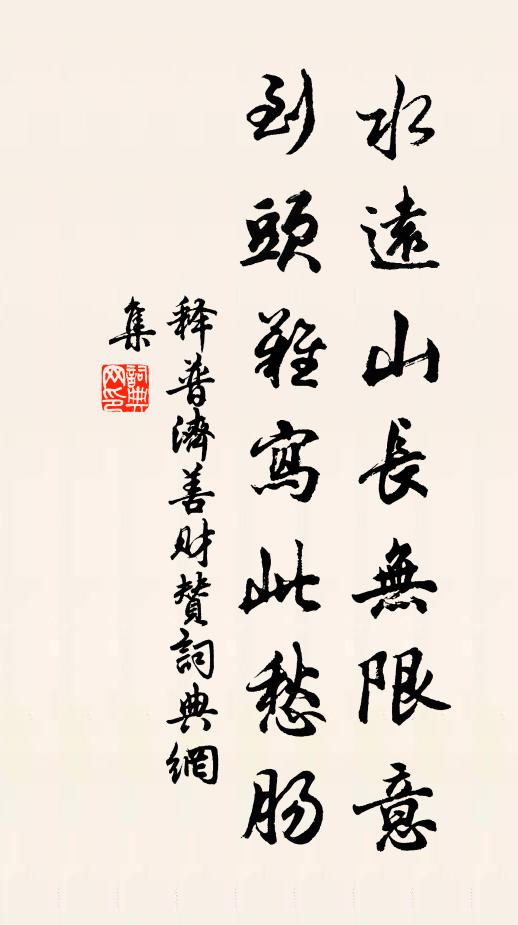 水遠山長無限意
到頭難寫此愁肠
释普濟善财贊詞典網
集
詞典网印